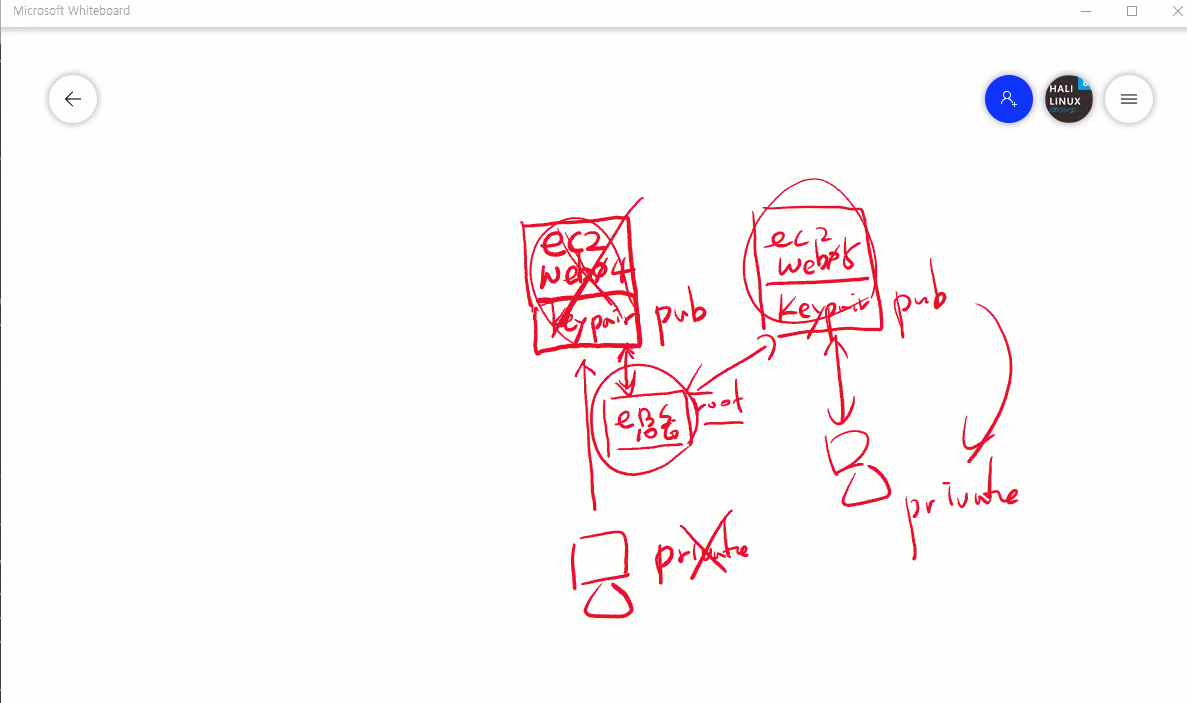 Microsoft Whiteboard
HALI
LINUX
ec2
web04
keypair
pub
ec2
web05
keypair
pub
eBS
10G
root
private
private